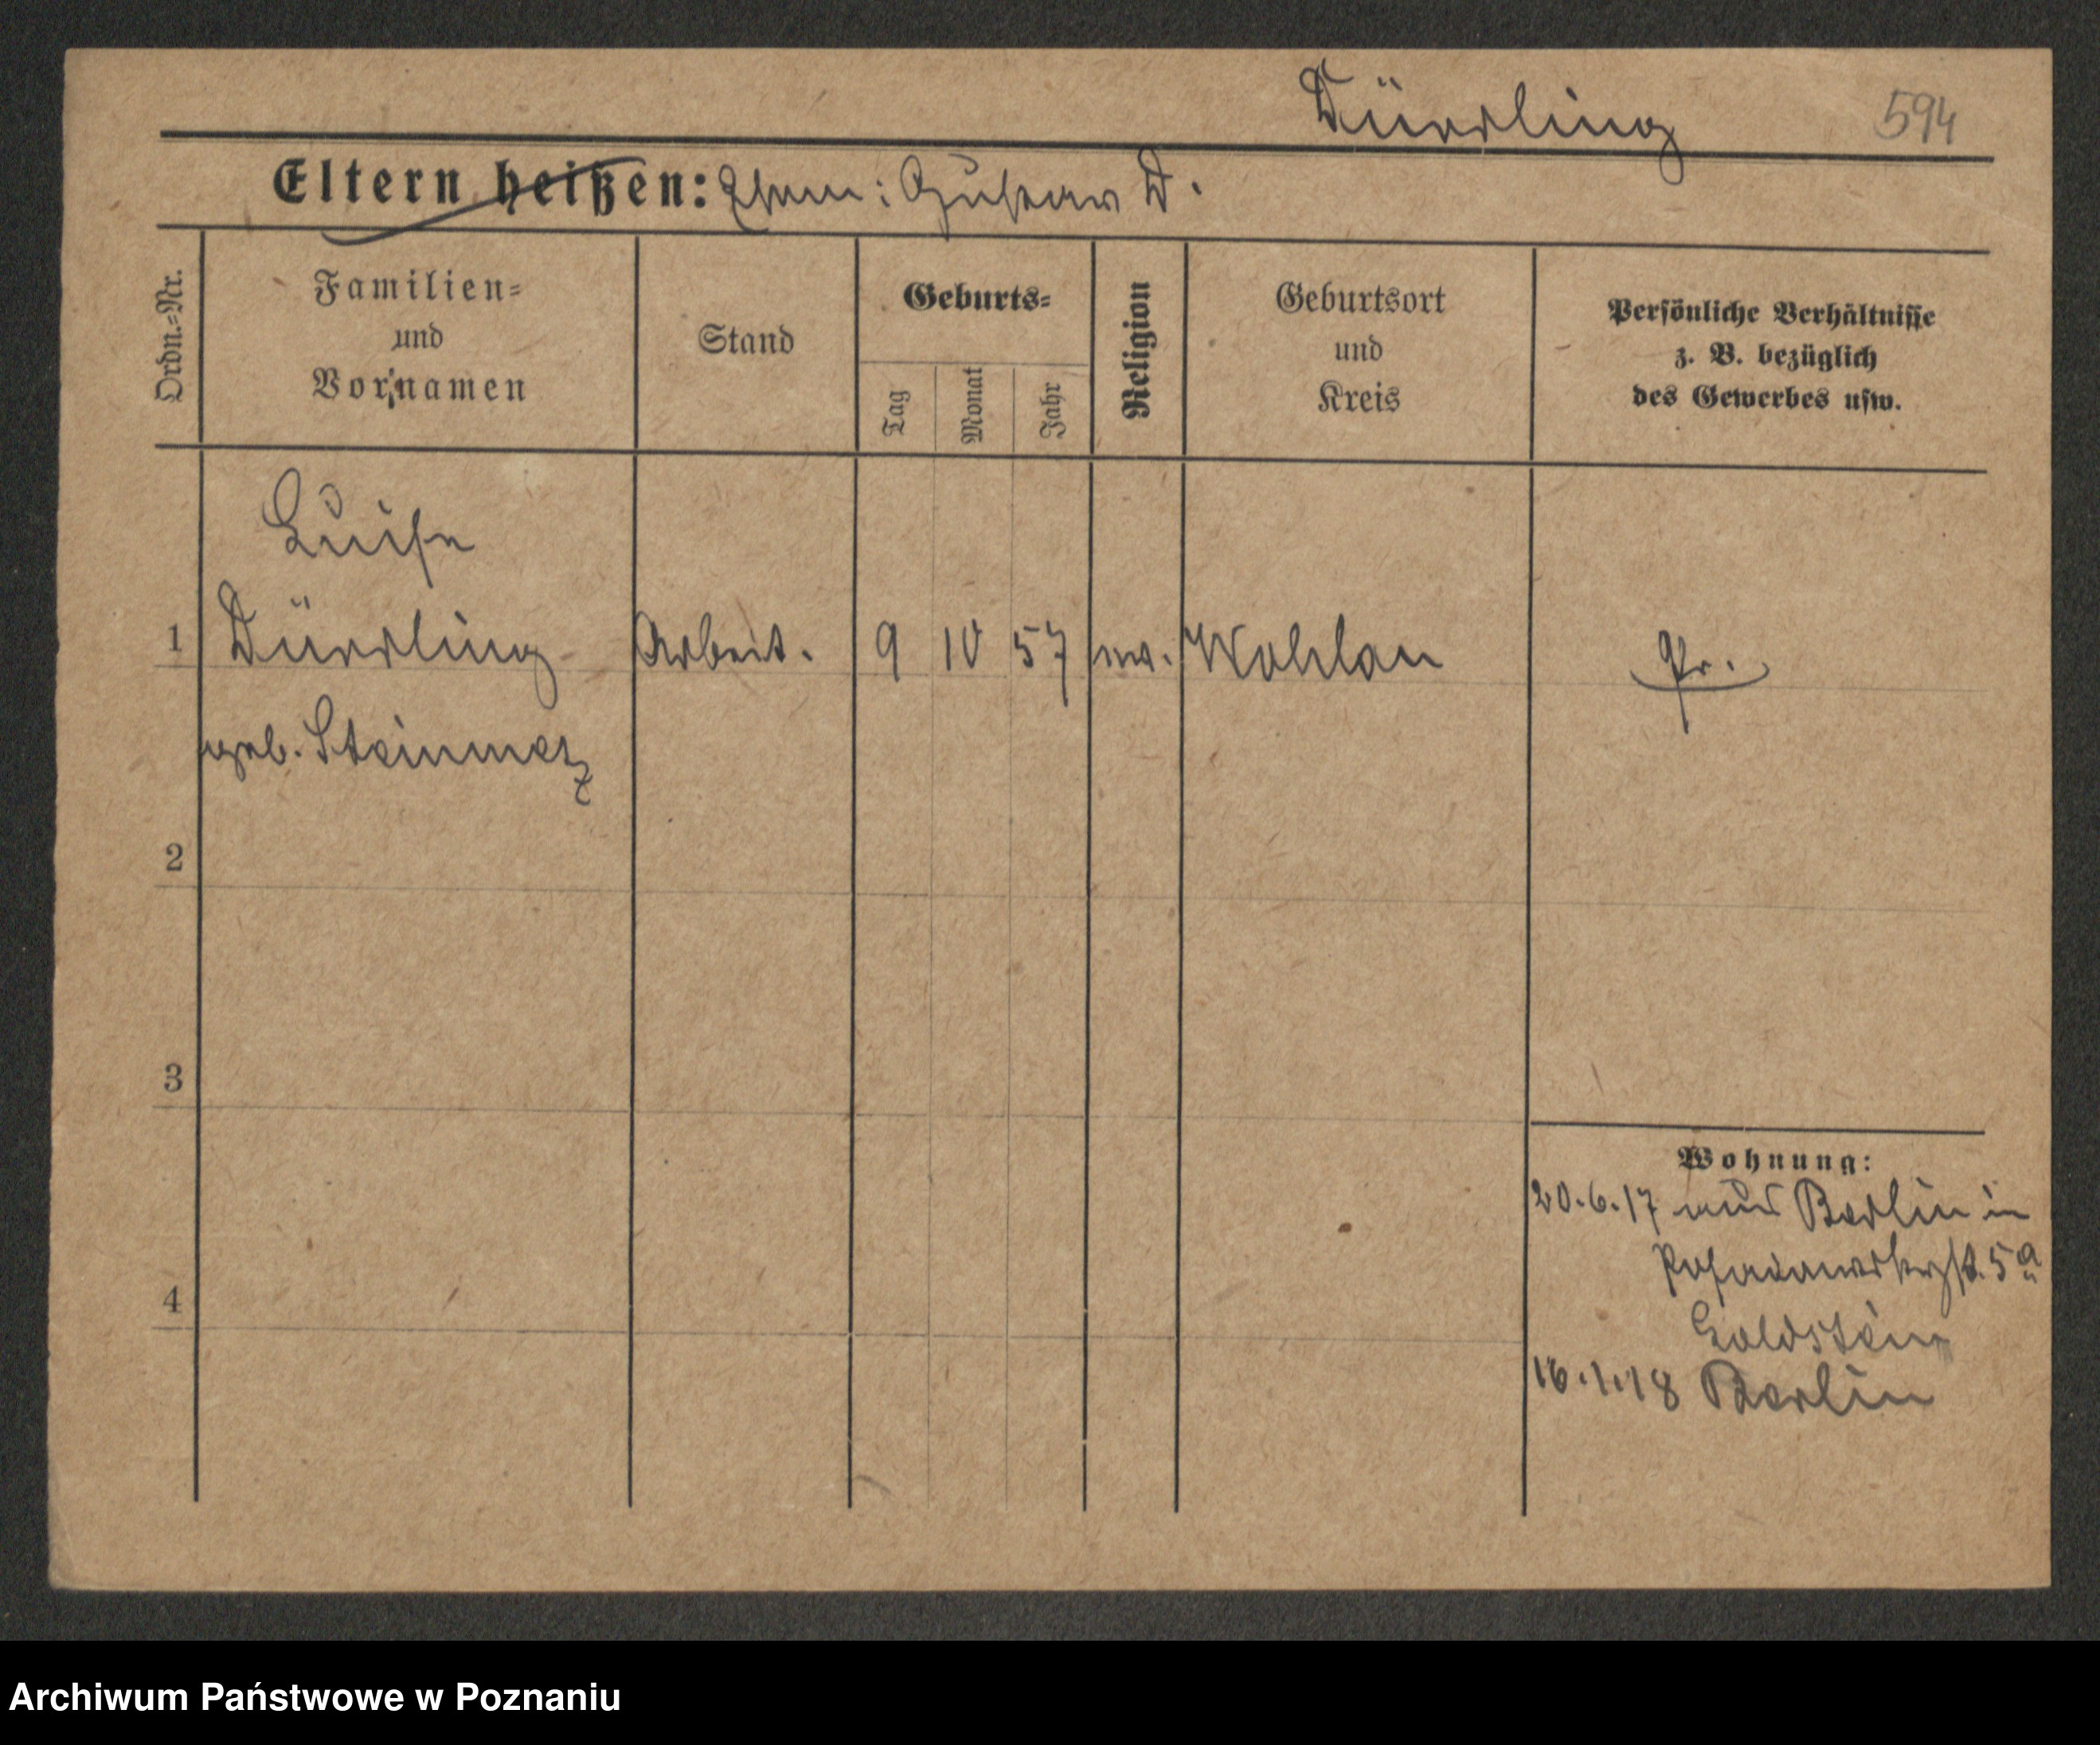 Düvrling 594
Eltern heißen: Ehem: Gustav D.
Ordn.=Nr.
Familien=
und
Vornamen
Stand
Geburts=
Tag
Monat
Jahr
Religion
Geburtsort
und
Kreis
Persönliche Verhältnisse
z. B. bezüglich
des Gewerbes usw.
Luise
1 Düvrling Arbeit. 9 10 57 ev. Wohlau Pr.
geb. Steinmetz
2
3
4
Wohnung:
20.6.17 aus Berlin in
5a
Goldstein
16.1.18 Berlin
Archiwum Państwowe w Poznaniu